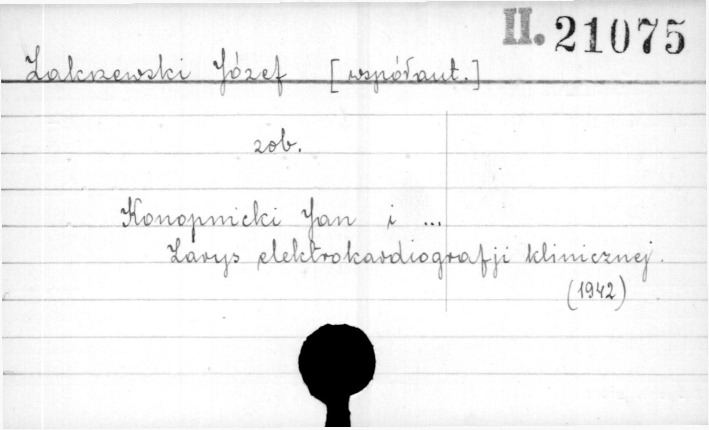 II. 21075
Zakrzewski Józef [współaut.]
zob.
Konopnicki Jan i ...
Zarys elektrokardiografji klinicznej.
(1942)